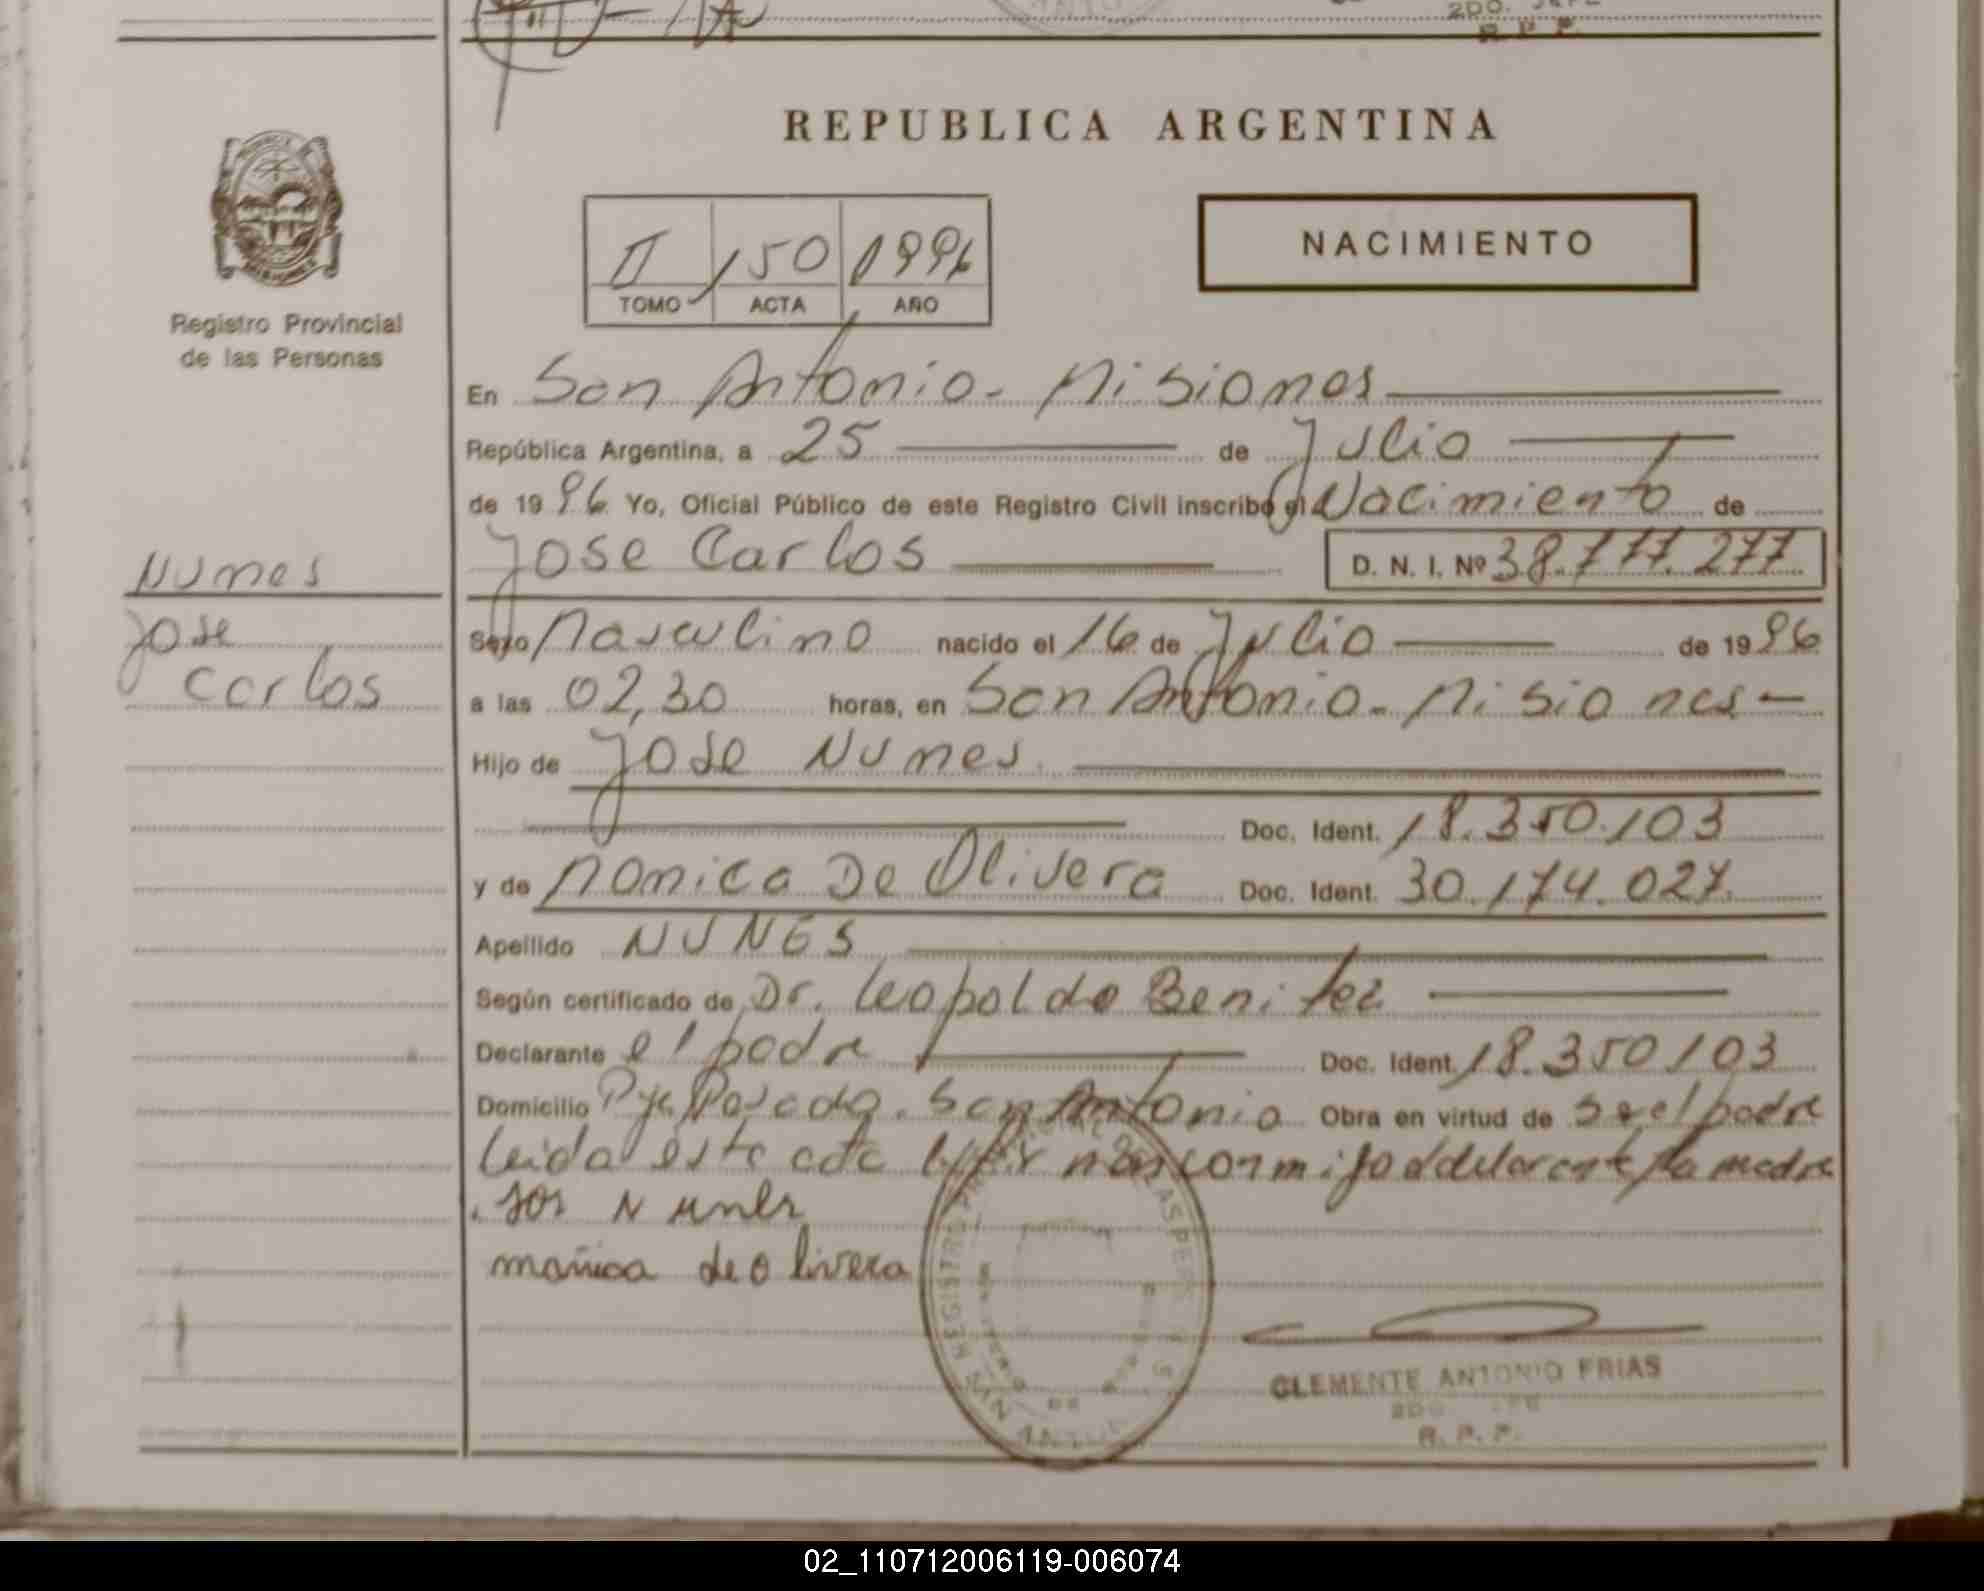 2DO. JEFE
R. P. P.
REPUBLICA ARGENTINA
II 150 1996
TOMO ACTA AÑO
NACIMIENTO
Registro Provincial
de las Personas
En San Antonio - Misiones
República Argentina, a 25 de Julio
de 1996 Yo, Oficial Público de este Registro Civil inscribo el Nacimiento de
Jose Carlos D. N. I. Nº 38.777.277
Nunes
Jose
Carlos
Sexo Masculino nacido el 16 de Julio de 1996
a las 02,30 horas, en San Antonio - Misiones -
Hijo de Jose Nunes
Doc. Ident. 18.350.103
y de Monica De Olivera Doc. Ident. 30.174.027
Apellido NUNES
Según certificado de Dr. Leopoldo Benitez
Declarante el padre Doc. Ident. 18.350103
Domicilio Pje Posada. San Antonio Obra en virtud de Ser el padre
Leida esta acta la firman conmigo el declarante y la madre
Jos Nunes
mañica de olivera
CLEMENTE ANTONIO FRIAS
2DO. JEFE
R. P. P.
02_110712006119-006074